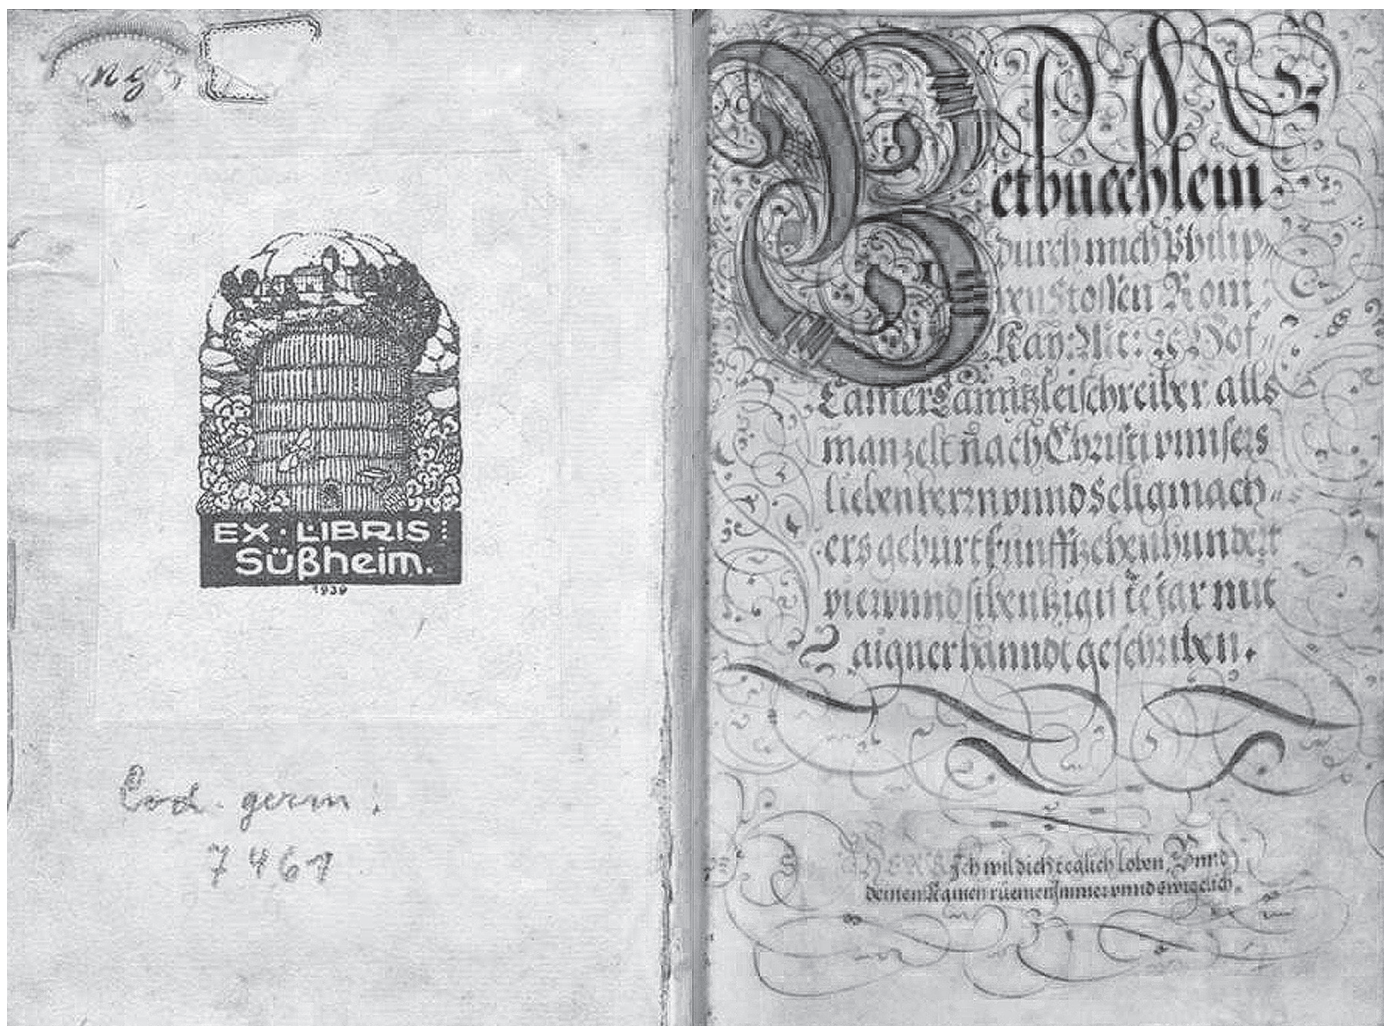 EX · LIBRIS :
Süßheim.
1939
Cod. germ:
7461
Betbuechlein
durch mich Philip„
pen Stossen Röm:
Kay: Mt: Hof„
Camer Canntzleischreiber alls
man zelt nach Christi vnnsers
lieben herrn vnnd Seligmach„
ers geburt funfftzehenhundert
vierunndsibentzigiste Jar mit
aigner hanndt geschriben.
HERR Ich wil dich teglich loben, Vnnd
deinen Namen rüemen Immer vnnd ewigelich.